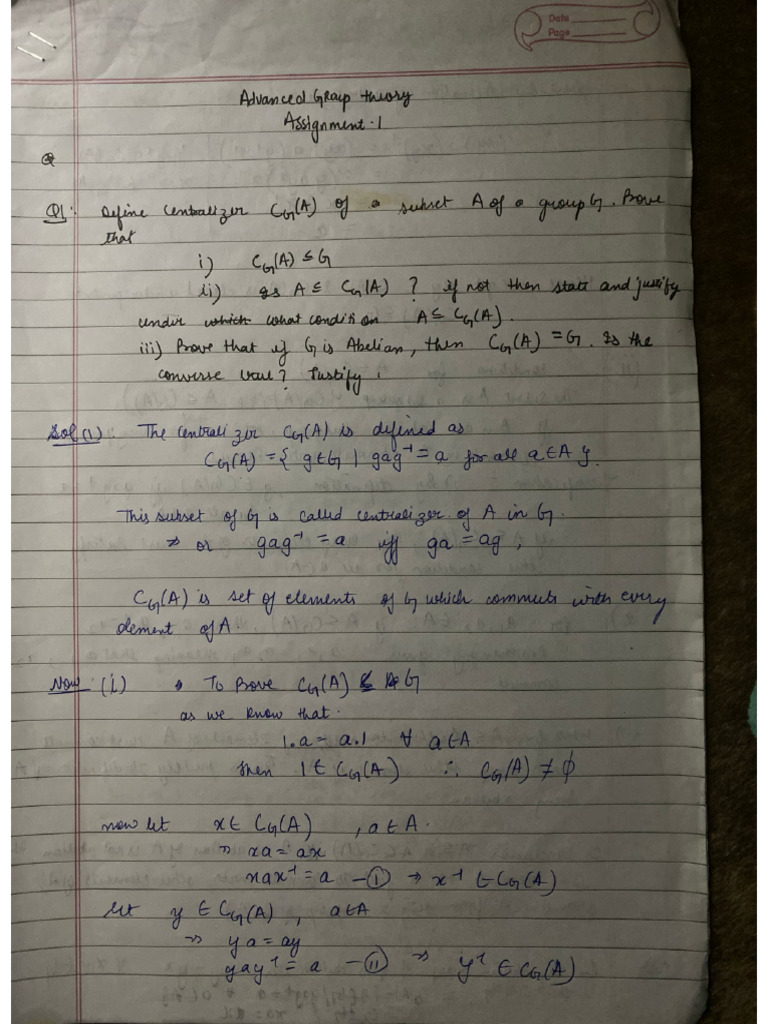 Date
Page
Advanced Group theory
Assignment-1
Q
Q1: Define Centralizer C_G(A) of a subset A of a group G. Prove
that
i) C_G(A) ≤ G
ii) Is A ≤ C_G(A) ? if not then state and justify
under which what condition A ⊆ C_G(A).
iii) Prove that if G is Abelian, then C_G(A) = G. Is the
converse true? Justify.
Sol(1): The Centralizer C_G(A) is defined as
C_G(A) = { g∈G | gag⁻¹ = a for all a∈A }.
This subset of G is called centralizer of A in G.
⇒ or gag⁻¹ = a iff ga = ag,
C_G(A) is set of elements of G which commuts with every
element of A.
Now: (i) → To Prove C_G(A) ≤ G
as we know that.
1.a = a.1 ∀ a∈A
then 1∈ C_G(A) ∴ C_G(A) ≠ ϕ
now let x∈ C_G(A) , a∈A.
⇒ xa = ax
xax⁻¹ = a —(I) ⇒ x⁻¹ ∈ C_G(A)
let y ∈ C_G(A) , a∈A
⇒ ya = ay
yay⁻¹ = a —(II) ⇒ y⁻¹ ∈ C_G(A)